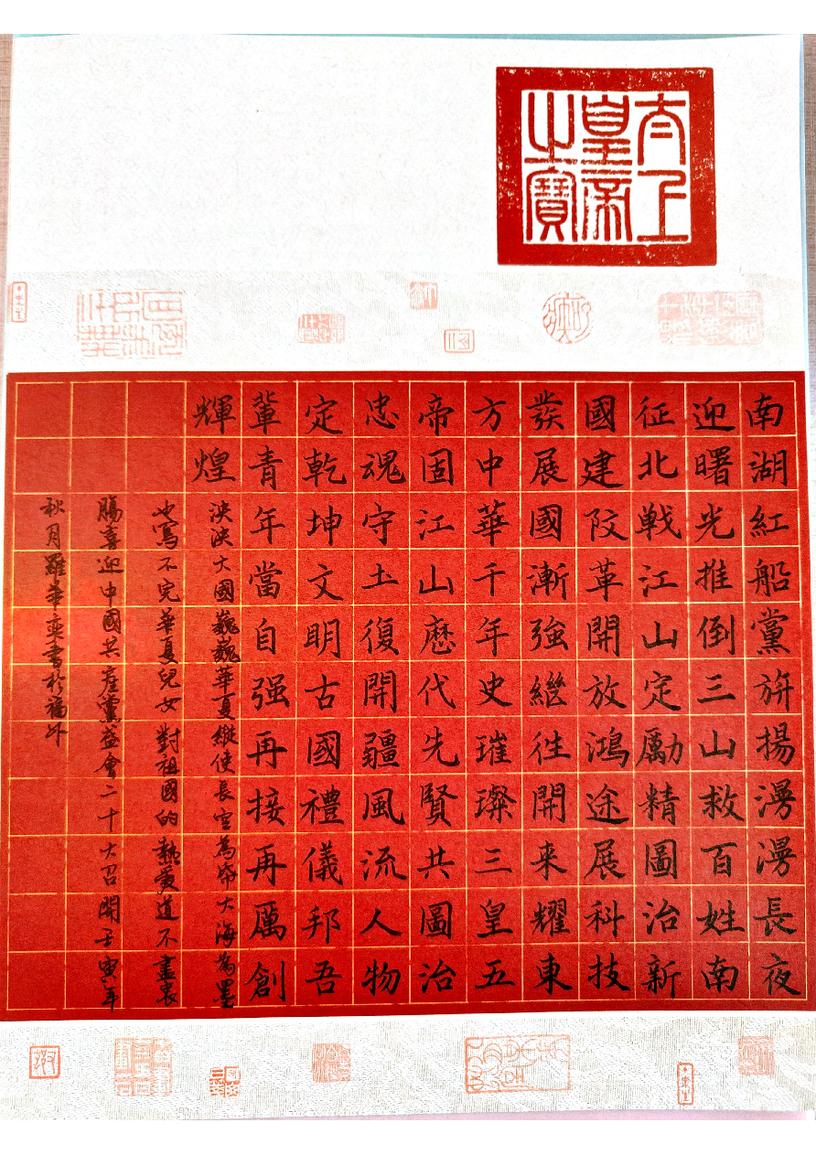 太上
皇帝
之寶
南湖紅船黨旂揚漫漫長夜
迎曙光推倒三山救百姓南
征北戦江山定勵精圖治新
國建改革開放鴻途展科技
發展國漸強繼徃開来耀東
方中華千年史璀璨三皇五
帝固江山歷代先賢共圖治
忠魂守土復開疆風流人物
定乾坤文明古國禮儀邦吾
輩青年當自强再接再厲創
輝煌
泱泱大國巍巍華夏縱使長空為紙大海為墨
也寫不完華夏兒女對祖國的熱愛道不盡衷
腸喜迎中國共產黨盛會二十大召開壬寅年
秋月羅華書於福州